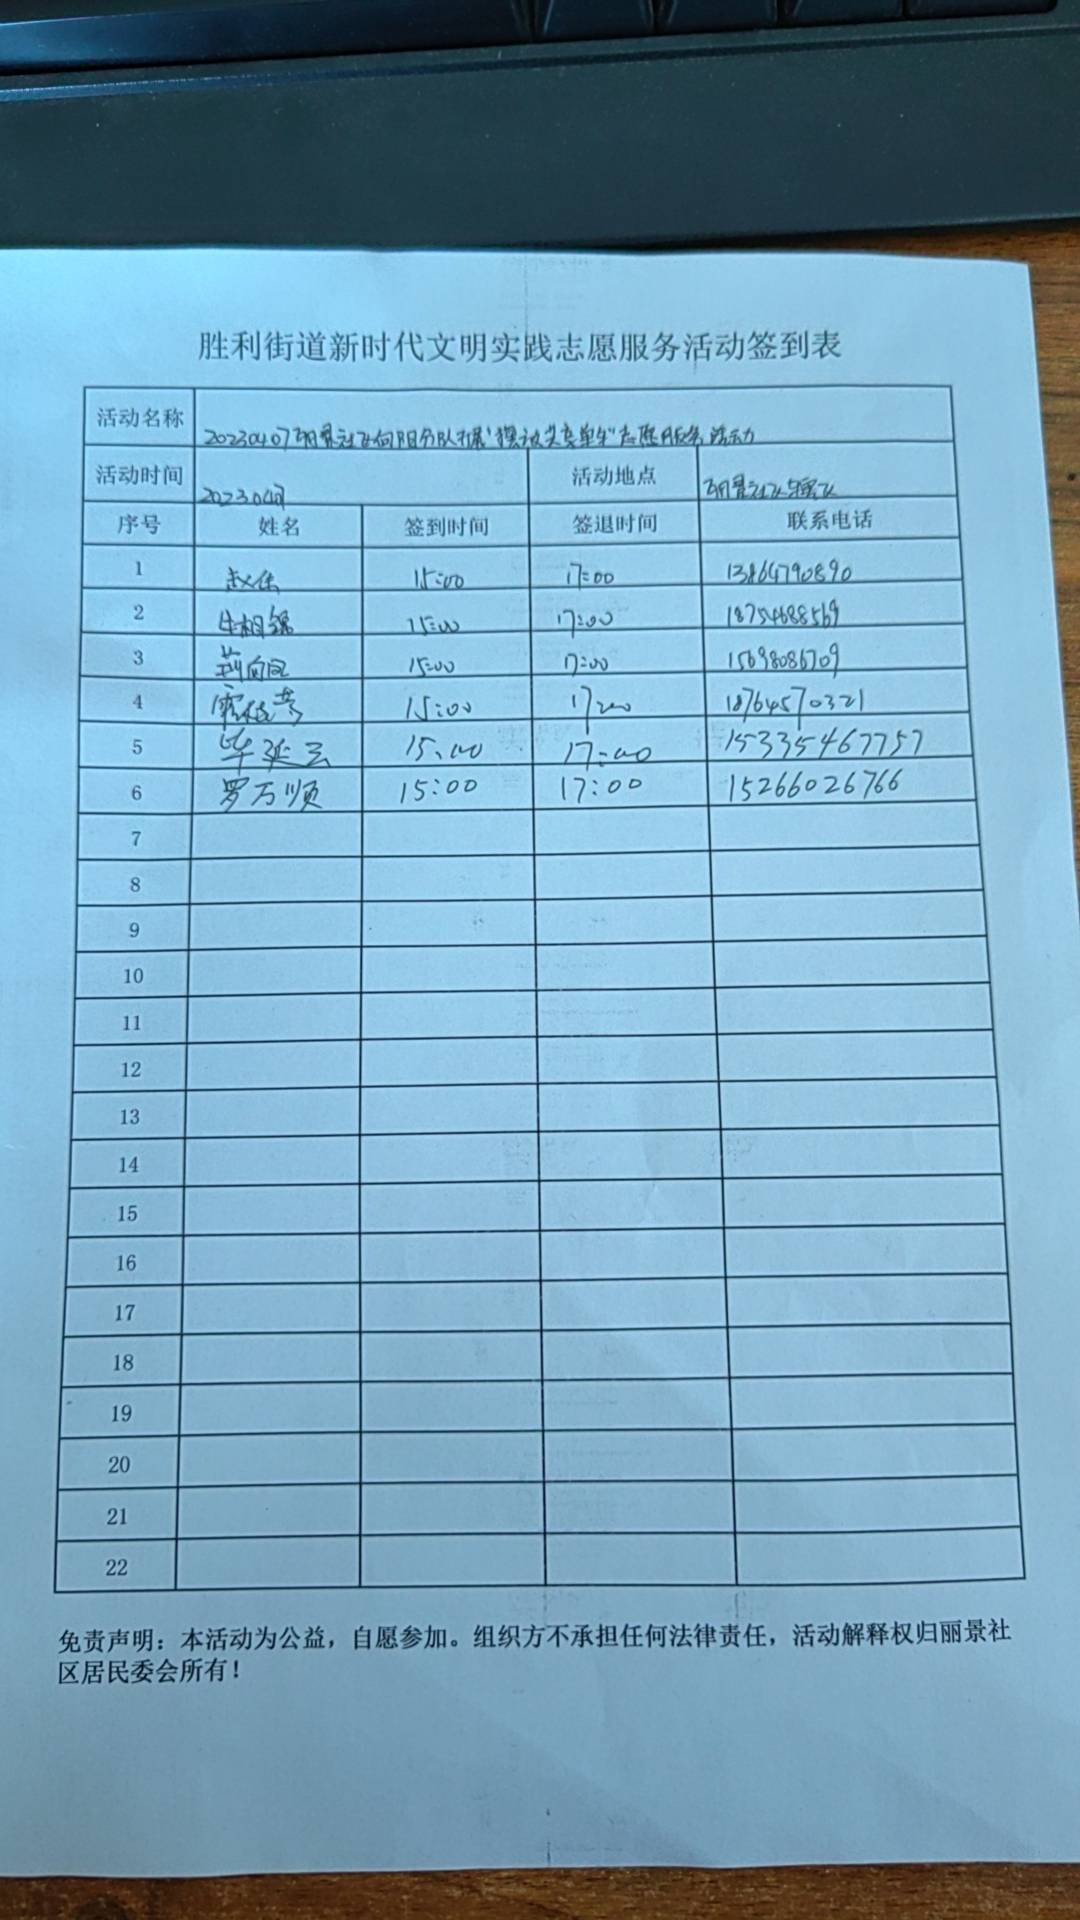 胜利街道新时代文明实践志愿服务活动签到表
活动名称 20230407丽景社区向阳分队开展"摆放共享单车"志愿服务活动
活动时间 20230407 活动地点 丽景社区辖区
序号 姓名 签到时间 签退时间 联系电话
1 赵 15:00 17:00 13864790890
2 牛相锦 15:00 17:00 18754688569
3 15:00 17:00 15698086709
4 霍 15:00 17:00 18764570321
5 毕延云 15:00 17:00 15335467757
6 罗万顺 15:00 17:00 15266026766
7
8
9
10
11
12
13
14
15
16
17
18
19
20
21
22
免责声明：本活动为公益，自愿参加。组织方不承担任何法律责任，活动解释权归丽景社
区居民委会所有！